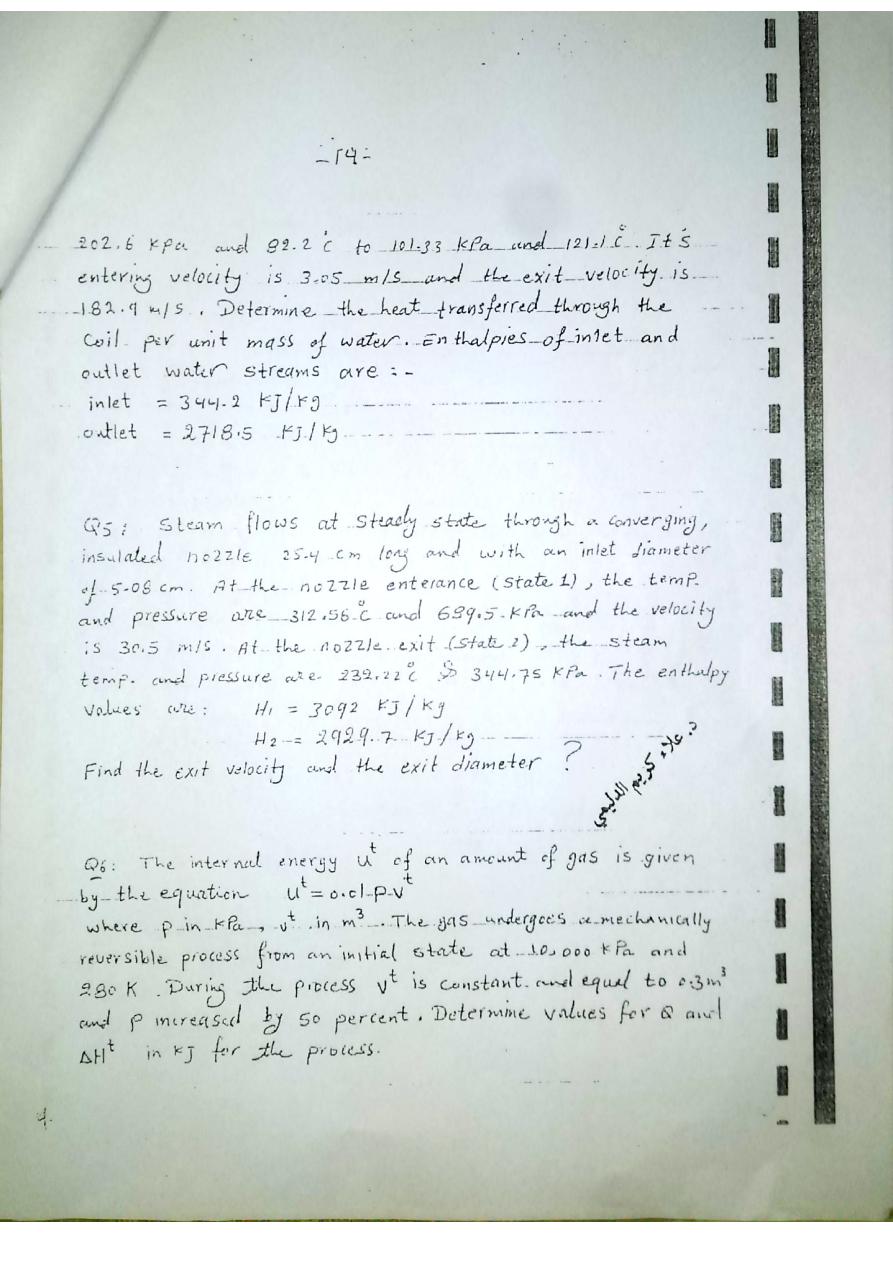 -14-
202.6 KPa and 82.2 °C to 101.33 KPa and 121.1 °C. It's
entering velocity is 3.05 m/s and the exit velocity is
182.9 m/s. Determine the heat transferred through the
Coil per unit mass of water. Enthalpies of inlet and
outlet water streams are :-
inlet = 344.2 KJ/Kg
outlet = 2718.5 KJ/Kg
Q5: Steam flows at Steady state through a converging,
insulated nozzle 25.4 cm long and with an inlet diameter
of 5.08 cm. At the nozzle enterance (State 1), the temp.
and pressure are 312.56 °C and 689.5 KPa and the velocity
is 30.5 m/s. At the nozzle exit (State 2), the steam
temp. and pressure are 232.22 °C & 344.75 KPa. The enthalpy
Values are: H1 = 3092 KJ/Kg
H2 = 2929.7 KJ/Kg
Find the exit velocity and the exit diameter ?
د. علاء كريم الدليمي
Q6: The internal energy U^t of an amount of gas is given
by the equation U^t = 0.01 P V^t
where P in KPa, V^t in m³. The gas undergoes a mechanically
reversible process from an initial state at 10,000 KPa and
280 K. During the process V^t is constant and equal to 0.3 m³
and P increased by 50 percent. Determine values for Q and
ΔH^t in KJ for the process.